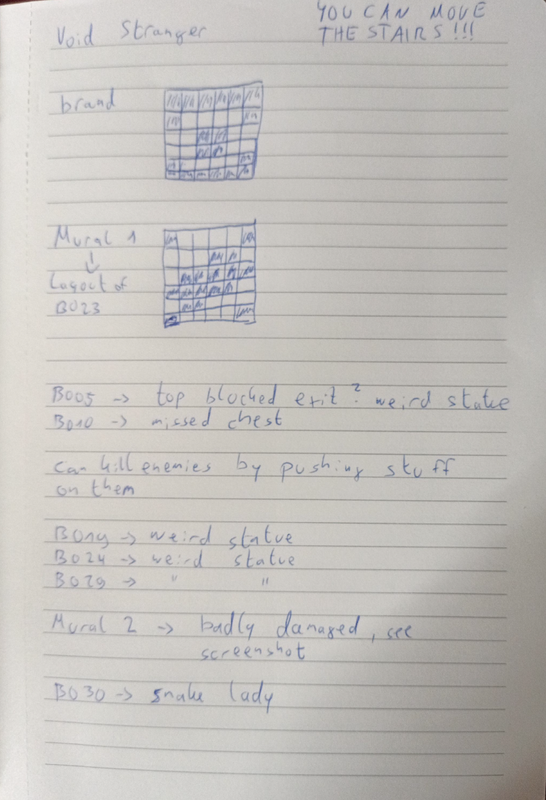 Void Stranger
YOU CAN MOVE
THE STAIRS!!!
brand
Mural 1
↓
Layout of
B023
B005 -> top blocked exit? weird statue
B010 -> missed chest
can kill enemies by pushing stuff
on them
B019 -> weird statue
B024 -> weird statue
B029 -> " "
Mural 2 -> badly damaged, see
screenshot
B030 -> snake lady